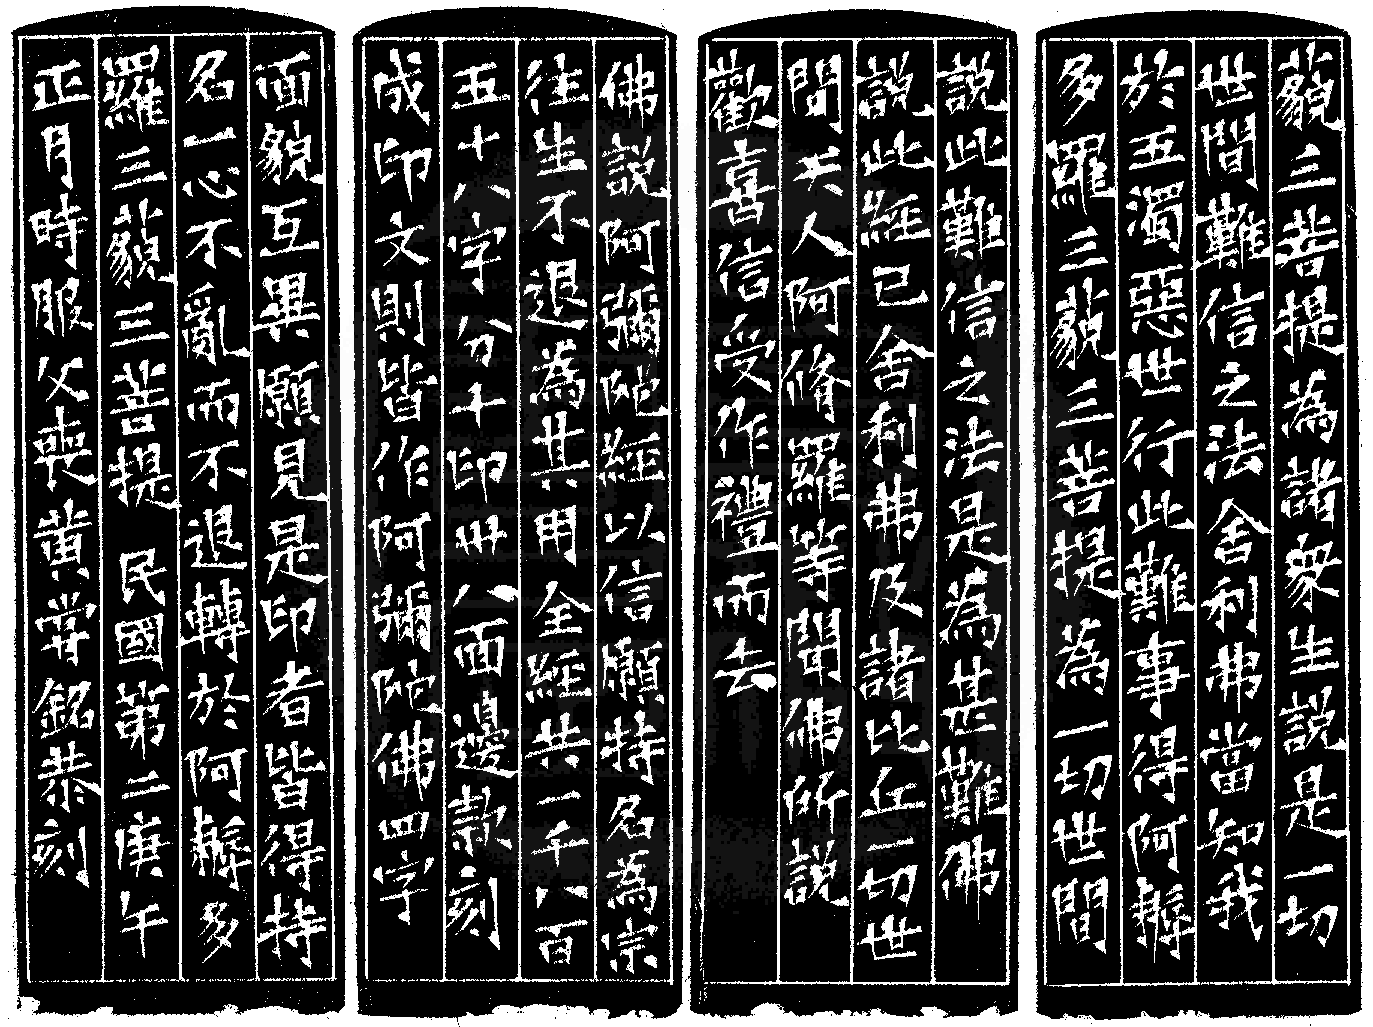 藐三菩提為諸眾生說是一切
世間難信之法舍利弗當知我
於五濁惡世行此難事得阿耨
多羅三藐三菩提為一切世間
說此難信之法是為甚難佛
說此經已舍利弗及諸比丘一切世
間天人阿脩羅等聞佛所說
歡喜信受作禮而去
佛說阿彌陀經以信願持名為宗
往生不退為其用全經共一千八百
五十八字分千印卅八面邊款刻
成印文則皆作阿彌陀佛四字
面貌互異願見是印者皆得持
名一心不亂而不退轉於阿耨多
羅三藐三菩提 民國第二庚午
正月時服父喪黃嘗銘恭刻